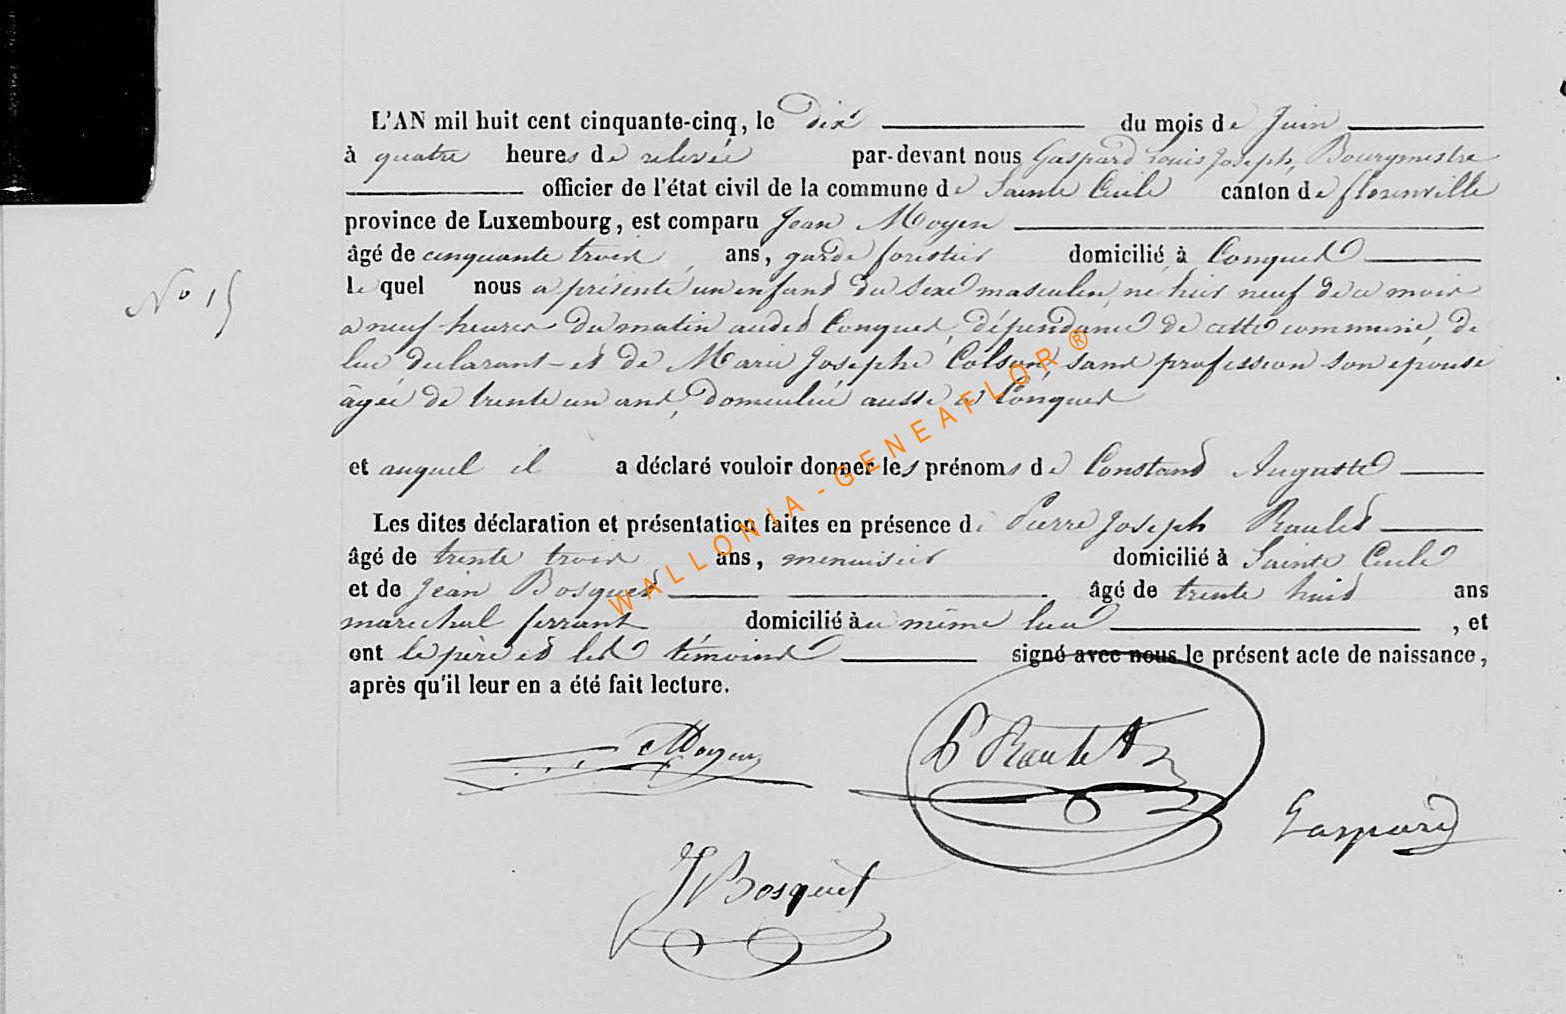 L'AN mil huit cent cinquante-cinq, le dix du mois de Juin
à quatre heures de relevée par-devant nous Gaspard Louis Joseph, Bourgmestre
officier de l'état civil de la commune de Sainte Cécile canton de florenville
province de Luxembourg, est comparu Jean Moyen
âgé de cinquante trois ans, garde forestier domicilié à Conques
le quel nous a présenté un enfant du sexe masculin, né hier neuf de ce mois
N° 15
a neuf heures du matin audit Conques, dépendance de cette commune, de
lui declarant et de Marie Josephe Colson sans profession son épouse
âgée de trente un ans, domiciliée aussi à Conques
et auquel il a déclaré vouloir donner les prénoms de Constant Auguste
Les dites déclaration et présentation faites en présence de Pierre Joseph Raulet
âgé de trente trois ans, menuisier domicilié à Sainte Cécile
et de Jean Bosquet âgé de trente huit ans
marechal ferrant domicilié au même lieu, et
ont le père et les témoins signé avec nous le présent acte de naissance,
après qu'il leur en a été fait lecture.
Moyen
P Raulet
Gaspard
J Bosquet
WALLONIA - GENEAFLOR ®